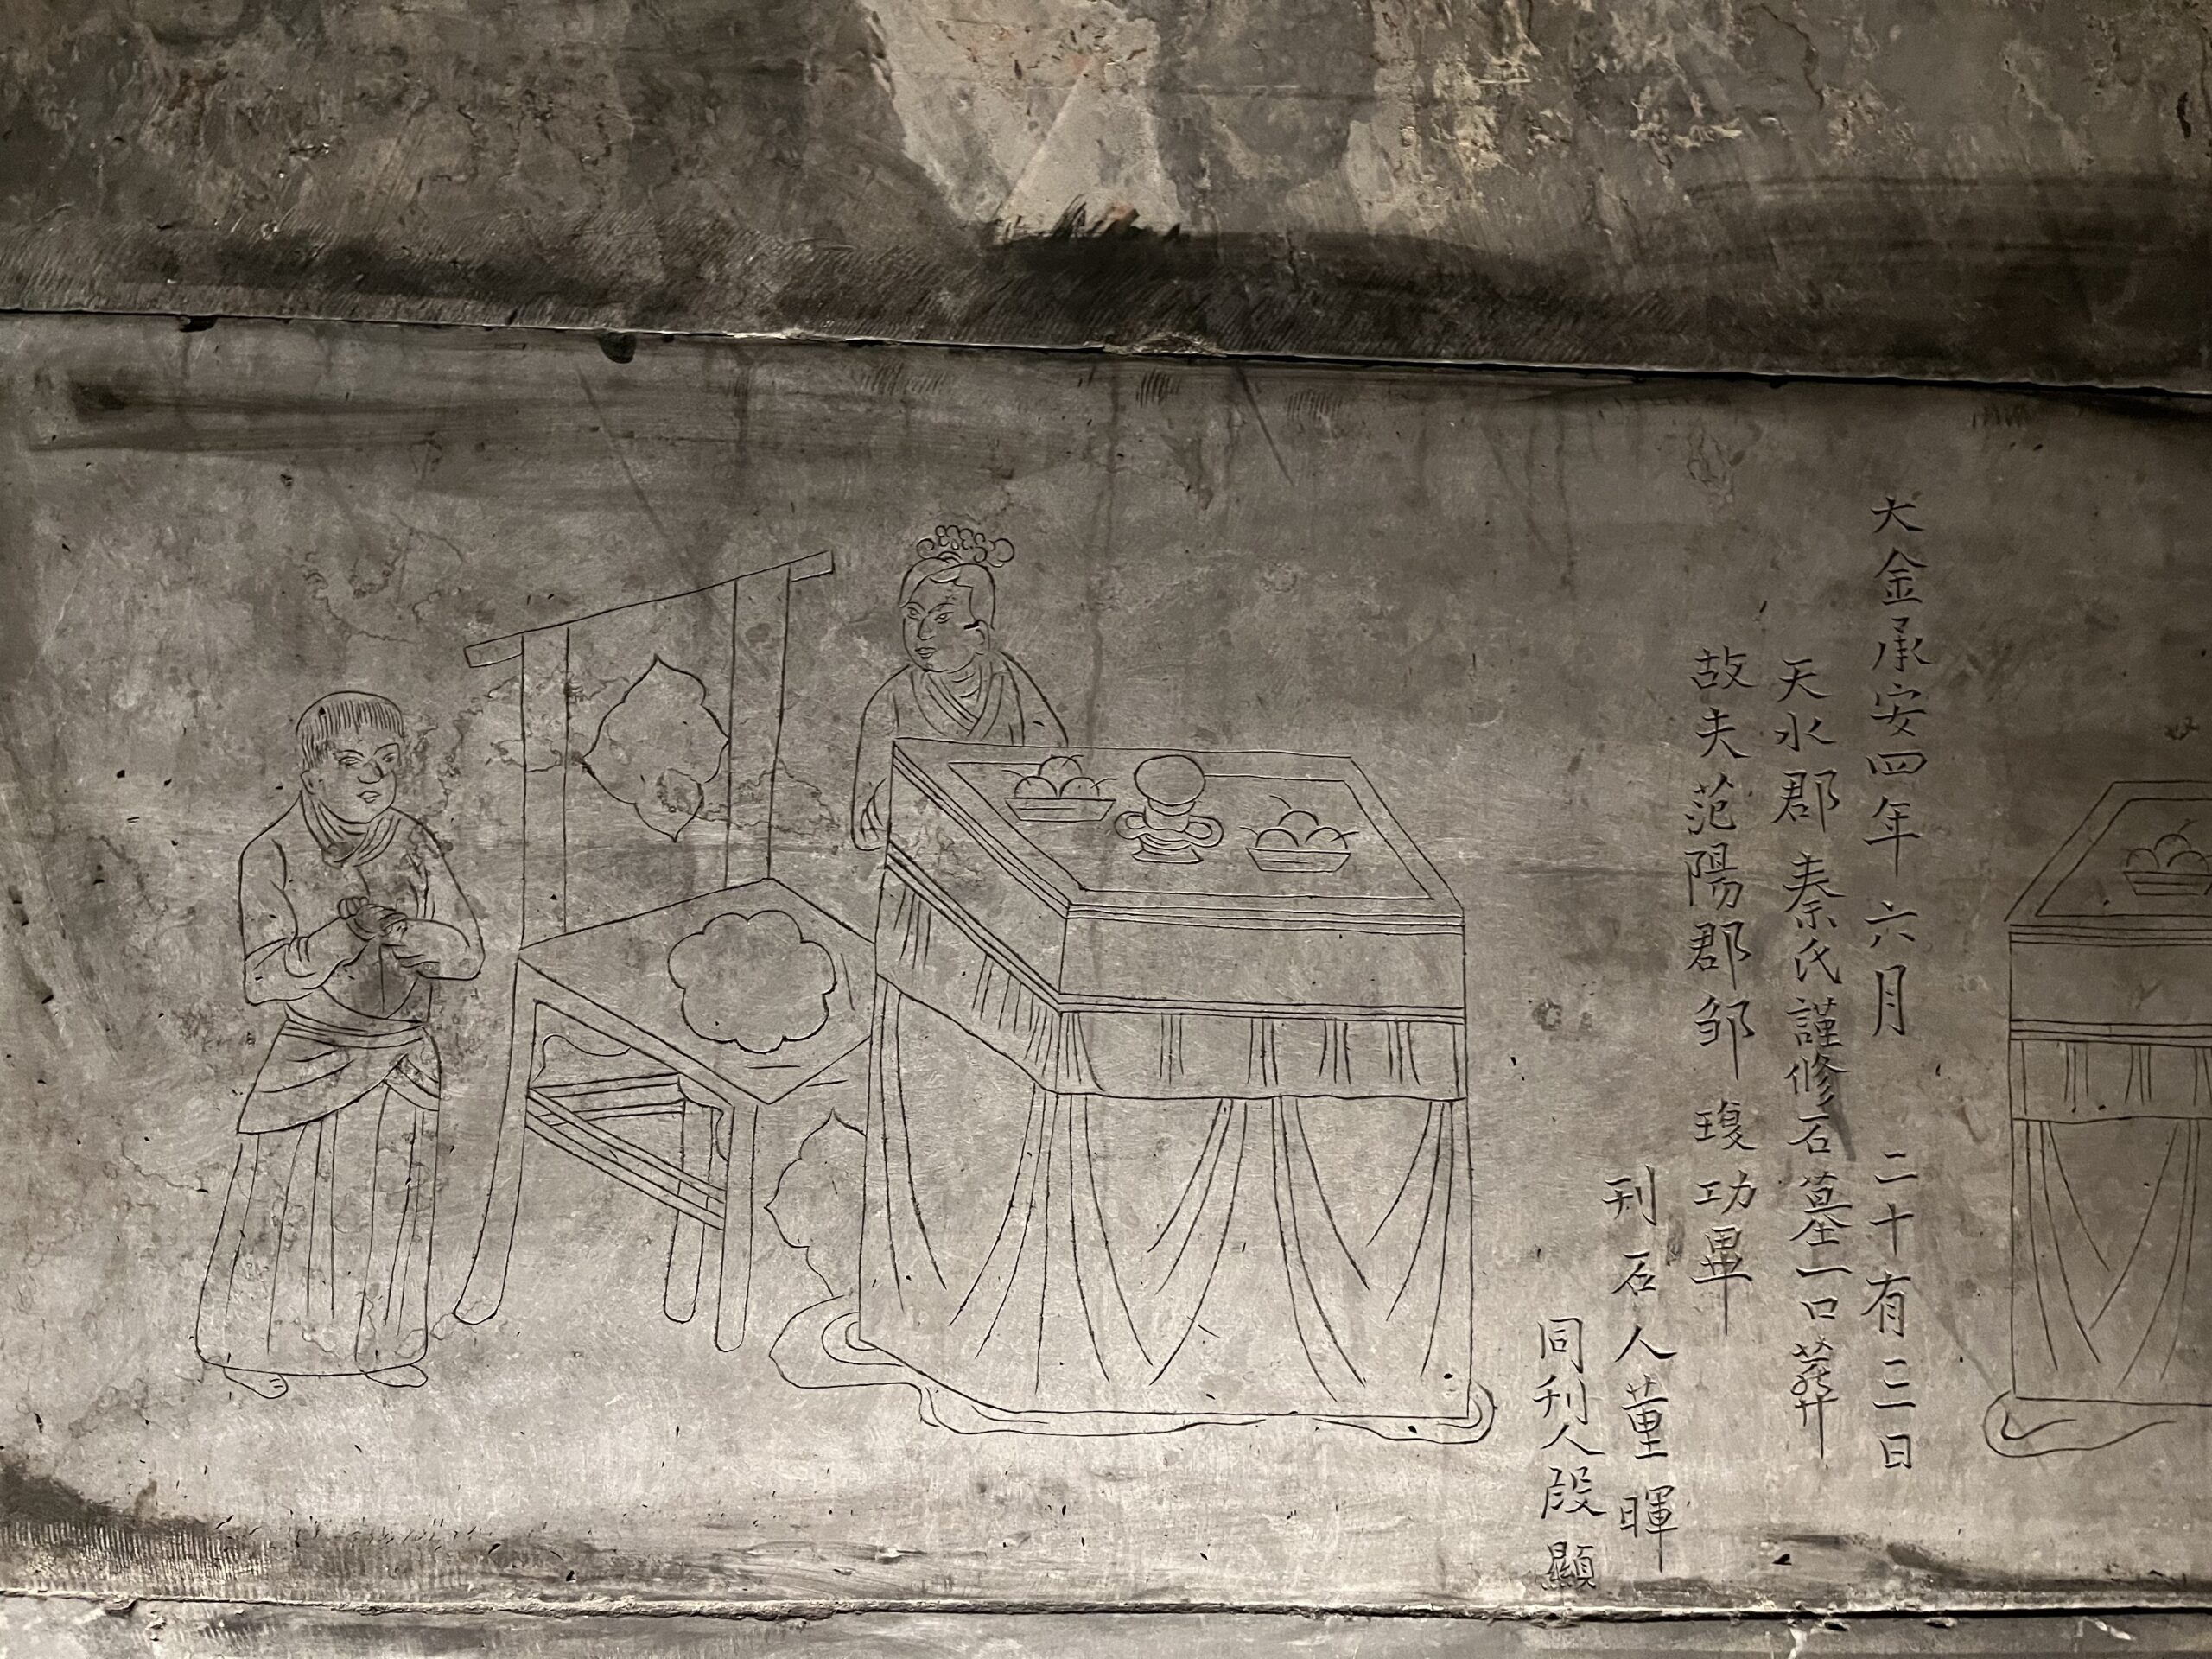 大金承安四年六月二十有二日
天水郡秦氏謹修石墓一口葬
故夫范陽郡邹瓊功畢
刊石人董暉
同刊人段顯